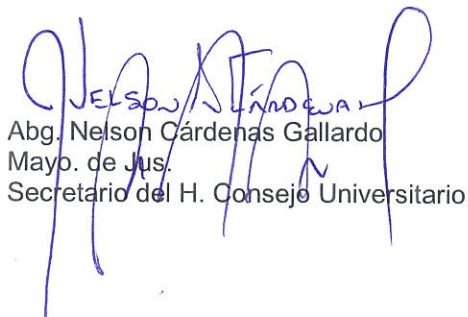 Nelson Cárdenas
Abg. Nelson Cárdenas Gallardo
Mayo. de Jus.
Secretario del H. Consejo Universitario